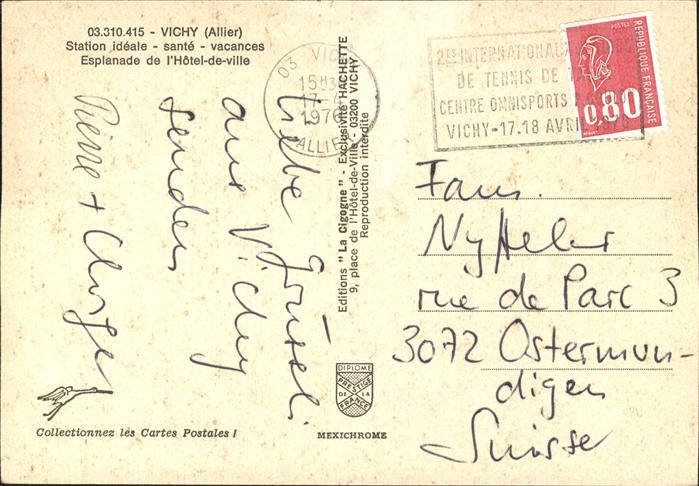 03.310.415 - VICHY (Allier)
Station idéale - santé - vacances
Esplanade de l'Hôtel-de-ville
03 VICHY
15H3
17-4
1976
ALLIER
2ES INTERNATIONAUX
DE TENNIS DE
CENTRE OMNISPORTS
VICHY-17.18 AVRIL 1976
POSTES
REPUBLIQUE FRANÇAISE
0,80
Liebe Grüssli
aus Vichy
senden
Pierre +
Editions "La Cigogne" - Exclusivité HACHETTE
9, place de l'Hôtel-de-Ville - 03200 VICHY
Reproduction interdite
Fam.
Nyffeler
rue de Parc 3
3072 Ostermun-
digen
Suisse
DIPLOME
PRESTIGE
DE LA
FRANCE
Collectionnez les Cartes Postales !
MEXICHROME